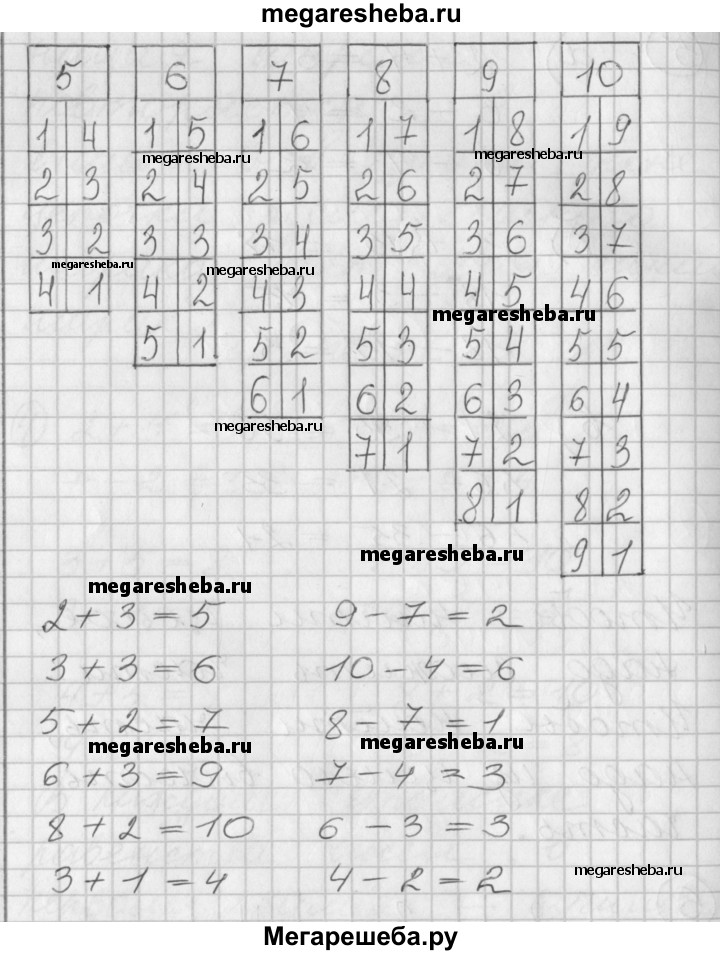 megaresheba.ru
5 6 7 8 9 10
1 4 1 5 1 6 1 7 1 8 1 9
megaresheba.ru megaresheba.ru
2 3 2 4 2 5 2 6 2 7 2 8
3 2 3 3 3 4 3 5 3 6 3 7
megaresheba.ru megaresheba.ru
4 1 4 2 4 3 4 4 4 5 4 6
megaresheba.ru
5 1 5 2 5 3 5 4 5 5
6 1 6 2 6 3 6 4
megaresheba.ru
7 1 7 2 7 3
8 1 8 2
megaresheba.ru
9 1
megaresheba.ru
2 + 3 = 5 9 - 7 = 2
3 + 3 = 6 10 - 4 = 6
5 + 2 = 7 8 - 7 = 1
megaresheba.ru megaresheba.ru
6 + 3 = 9 7 - 4 = 3
8 + 2 = 10 6 - 3 = 3
megaresheba.ru
3 + 1 = 4 4 - 2 = 2
Мегарешеба.ру